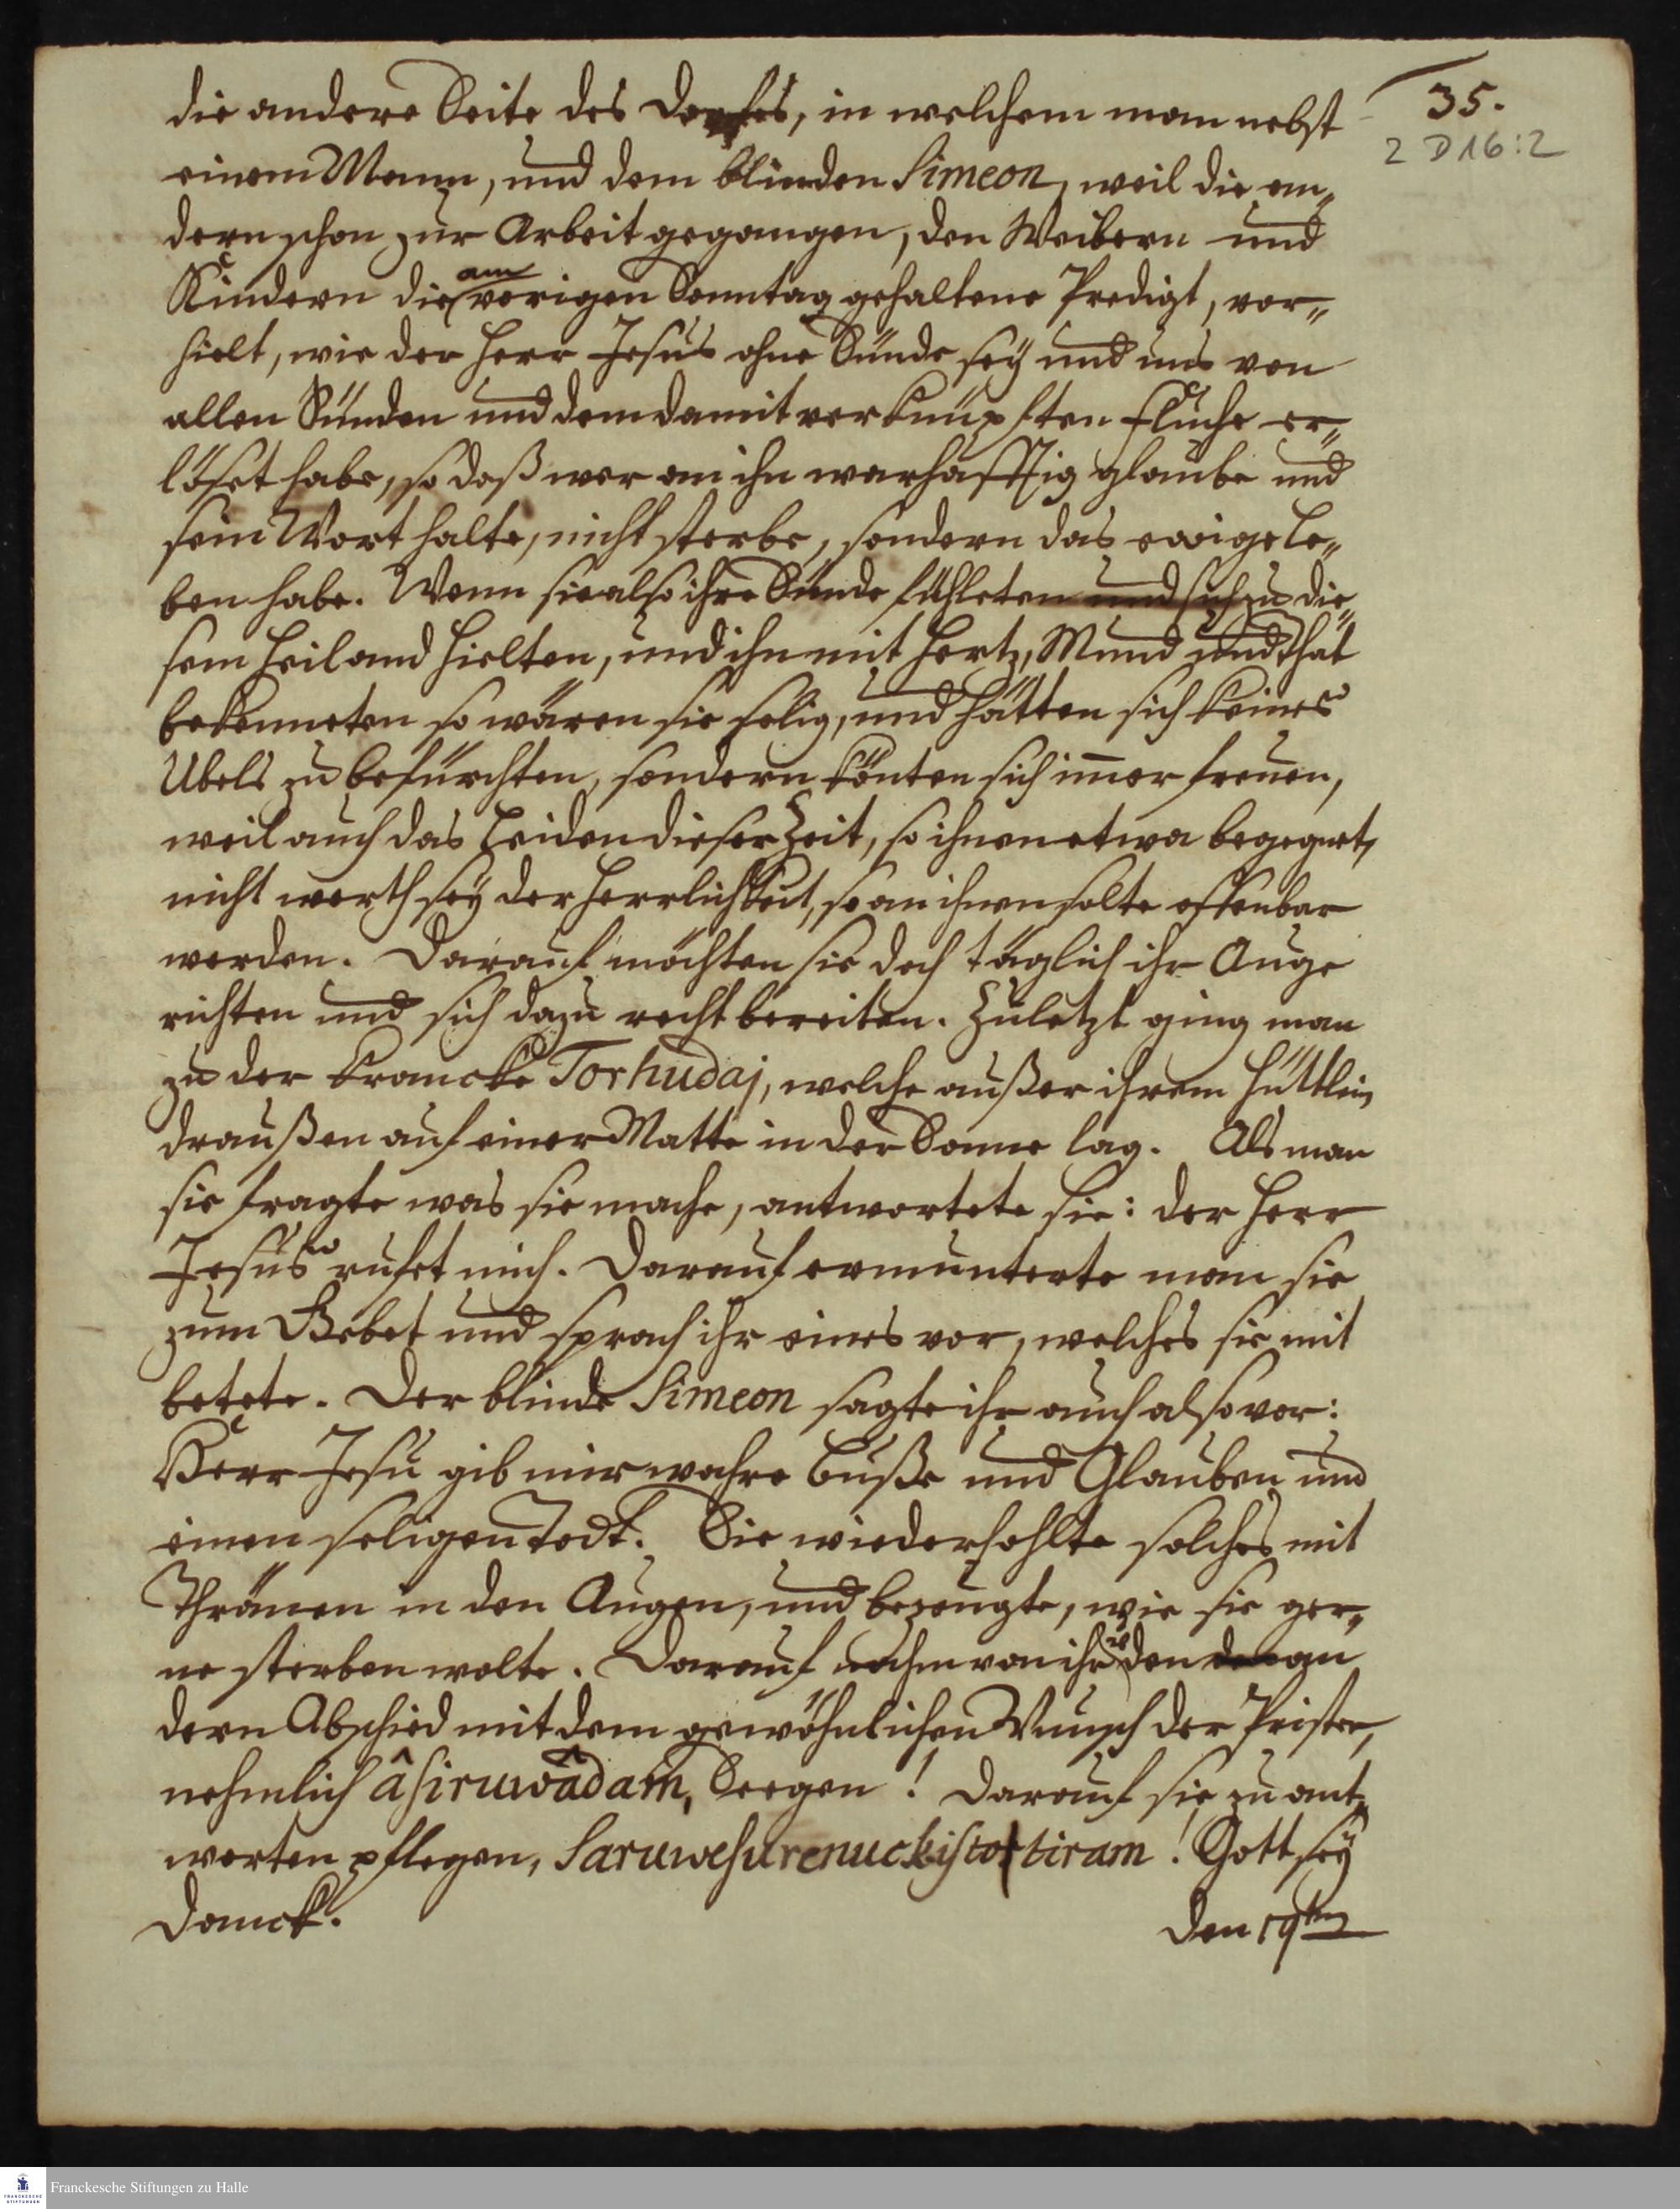 35.
2 D16:2
die andere Seite des Dorfes, in welchem man nebst
einem Mann, und dem blinden Simeon, weil die an„
dern schon zur Arbeit gegangen, den Weibern und
Kindern die am vorigen Sonntag gehaltene Predigt, vor„
hielt, wie der Herr Jesus ohne Sünde sey und uns von
allen Sünden und dem damit verknüpften Fluche er„
löset habe, so daß wer an ihn warhafftig glaube und
sein Wort halte, nicht sterbe, sondern das ewige Le„
ben habe. Wenn sie also ihre Sünde fühleten und sich zu die„
sem Heiland hielten, und ihn mit Hertz, Mund und That
bekenneten so wären sie selig, und hätten sich keines
Ubels zu befürchten, sondern könten sich im̅er freuen,
weil auch das Leiden dieser Zeit, so ihnen etwa begegnet,
nicht werth sey der Herrlichkeit, so an ihnen solte offenbar
werden. Darauf möchten sie doch täglich ihr Auge
richten und sich dazu recht bereiten. Zuletzt ging man
zu der krancke Torhudaj, welche außer ihrem Hüttlein
draußen auf einer Matte in der Sonne lag. Als man
sie fragte was sie mache, antwortete sie: der Herr
Jesus rufet mich. Darauf ermunterte man sie
zum Gebet und sprach ihr eines vor, welches sie mit
betete. Der blinde Simeon sagte ihr auch also vor:
Herr Jesu gib mir wahre Buße und Glauben und
einen seligen Todt. Sie wiederhohlte solches mit
Thränen in den Augen, und bezeugte, wie sie ger„
ne sterben wolte. Darauf nahm von ihr den an
dern Abschied mit dem gewöhnlichen Wunsch der Prister,
nehmlich âsiruwâdam, Seegen! Darauf sie zu ant„
worten pflegen, Saruwesurenuckistottiram! Gott sey
Danck.
den 19ten
Franckesche Stiftungen zu Halle